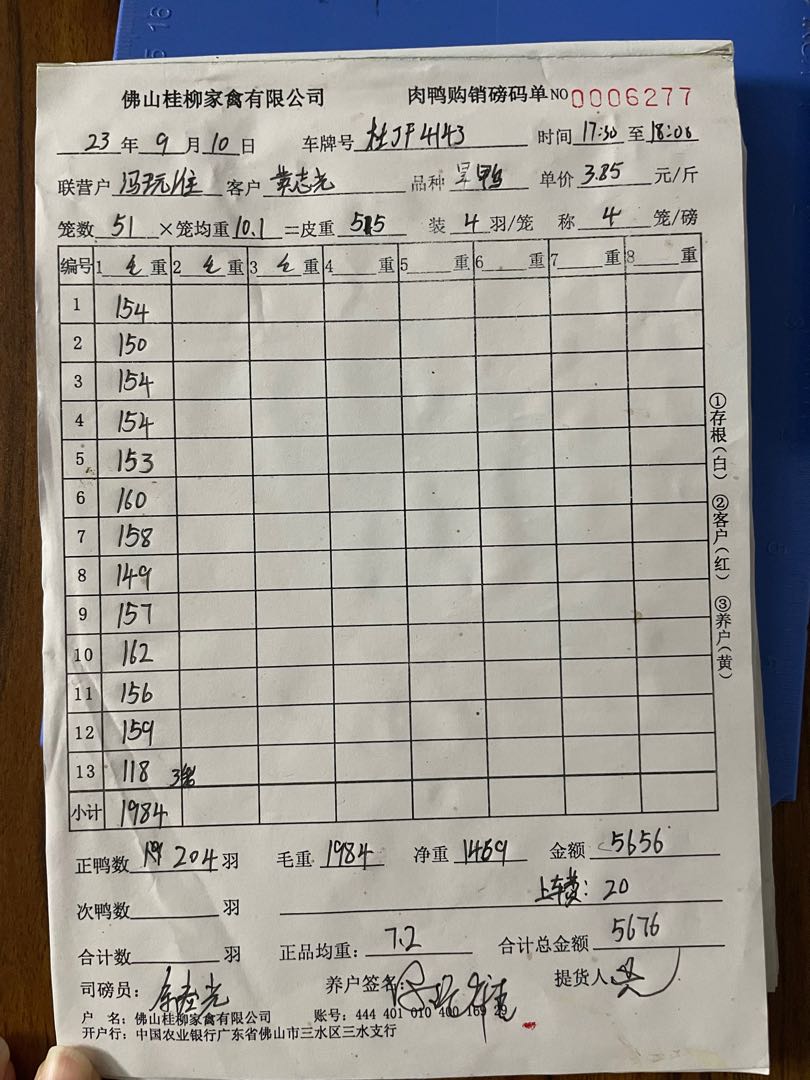 佛山桂柳家禽有限公司 肉鸭购销磅码单 NO 0006277
23 年 9 月 10 日 车牌号 桂JF4143 时间 17:30 至 18:06
联营户 冯 客户 黄志光 品种 旱鸭 单价 3.85 元/斤
笼数 51 ×笼均重 10.1 =皮重 515 装 4 羽/笼 称 4 笼/磅
编号 1 毛 重 2 毛 重 3 毛 重 4 重 5 重 6 重 7 重 8 重
1 154
2 150
3 154
4 154
5 153
6 160
7 158
8 149
9 157
10 162
11 156
12 159
13 118 3笼
小计 1984
①存根(白) ②客户(红) ③养户(黄)
正鸭数 204 羽 毛重 1984 净重 1469 金额 5656
次鸭数 羽 上车费: 20
合计数 羽 正品均重: 7.2 合计总金额 5676
司磅员: 养户签名: 提货人
户 名: 佛山桂柳家禽有限公司 账号: 444 401 010 400 169
开户行: 中国农业银行广东省佛山市三水区三水支行
16